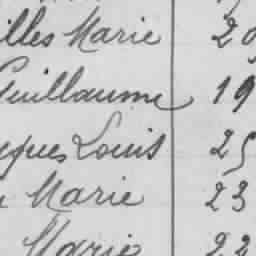 illes Marie 20
Guillaume 19
cques Louis 25
Marie 23
Marie 22